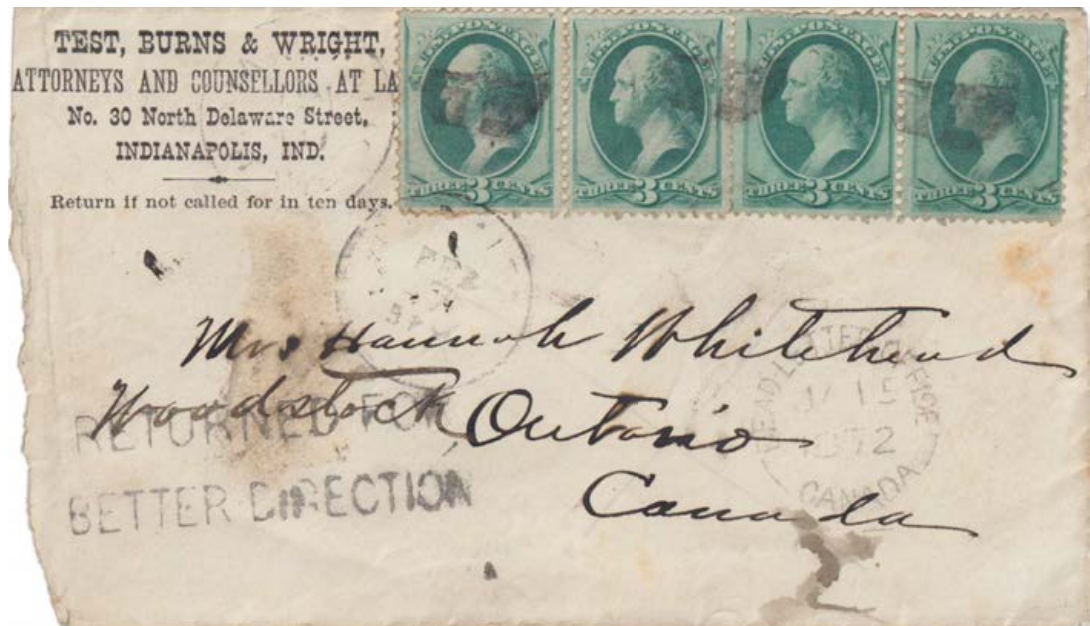 TEST, BURNS & WRIGHT,
ATTORNEYS AND COUNSELLORS AT LA
No. 30 North Delaware Street,
INDIANAPOLIS, IND.
Return if not called for in ten days.
U.S. POSTAGE
THREE 3 CENTS
U.S. POSTAGE
THREE 3 CENTS
U.S. POSTAGE
THREE 3 CENTS
U.S. POSTAGE
THREE 3 CENTS
Mrs Hannah Whitehead
Woodstock Ontario
Canada
RETURNED FOR
BETTER DIRECTION
DEAD LETTER OFFICE
15
CANADA